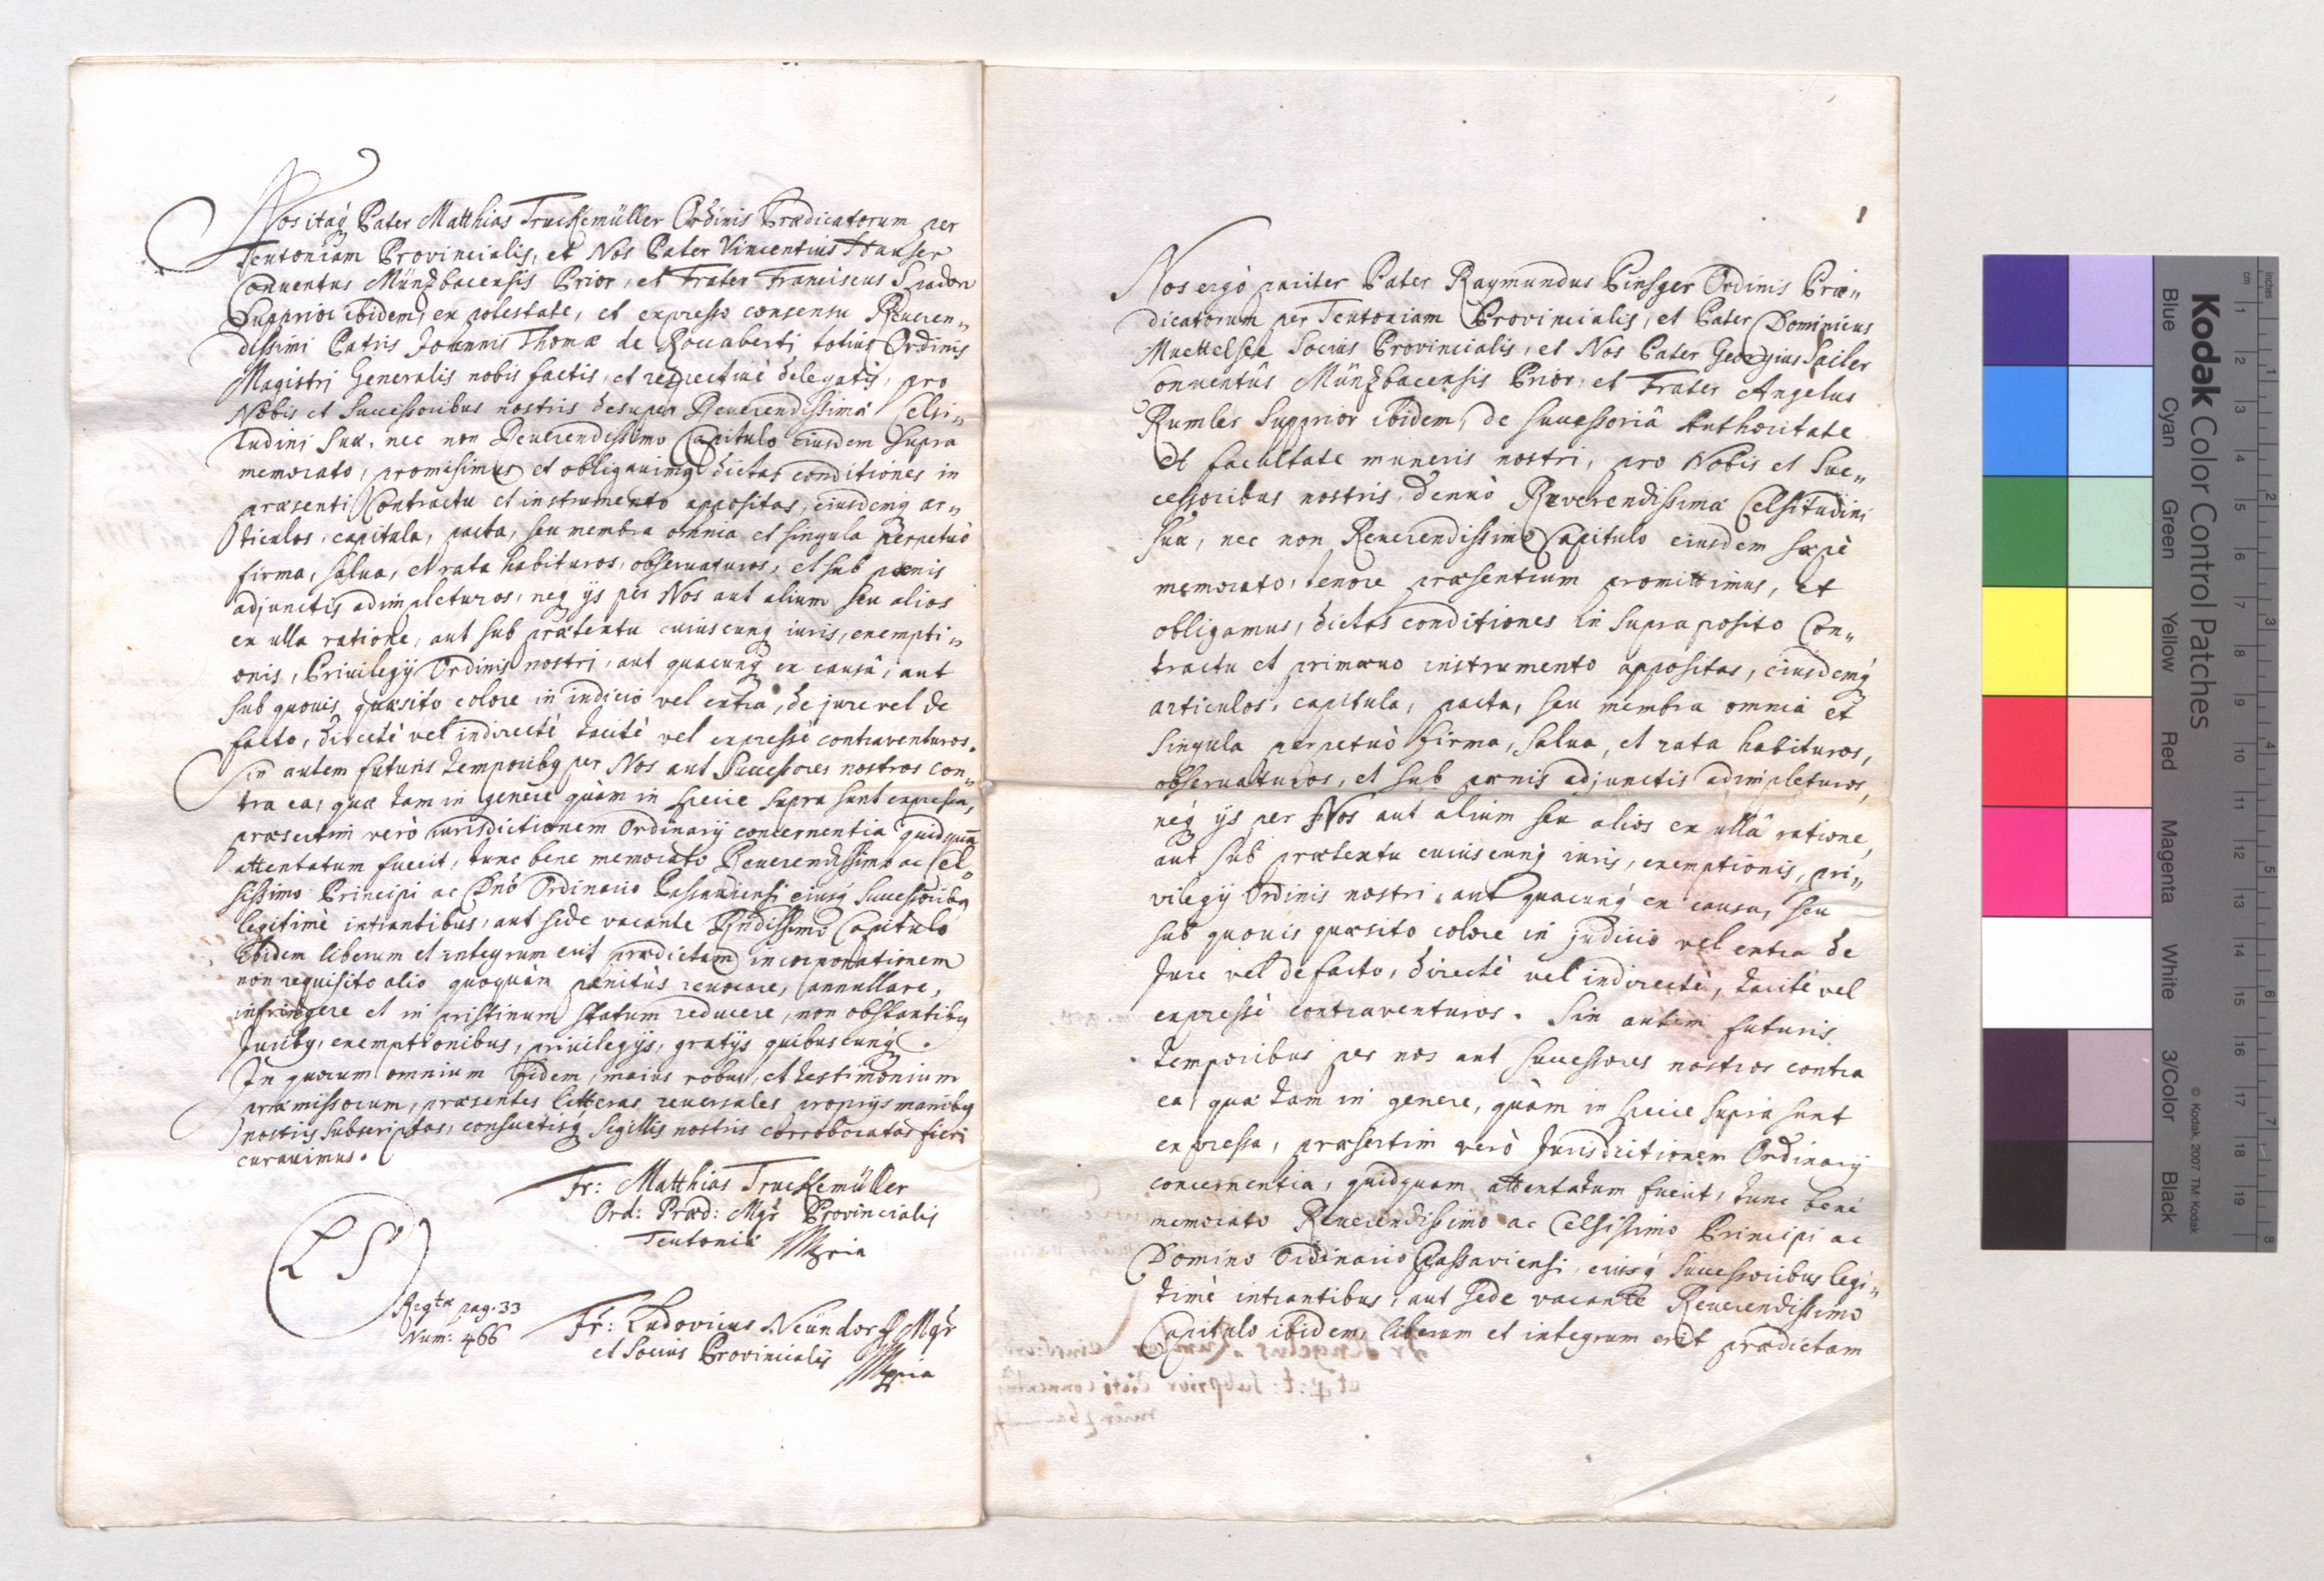 Nos itaq₃ Pater Matthias Truckemüller Ordinis Prædicatorum per
Teutoniam Provincialis, et Nos Pater Vincentius Hauser
Conventus Münzbacensis Prior, et Frater Franciscus Spadon
Supprior ibidem, ex potestate, et expresso consensu Reveren„
dissimi Patris Joannis Thomæ de Roccaberti totius Ordinis
Magistri Generalis nobis factis, et respectivè delegatis, pro
Nobis et Successoribus nostris desuper Reverendissimæ Celsi„
tudini suæ, nec non Reverendissimo Capitulo eiusdem supra
memorato, promisimus et obligavimq₃ dictas conditiones in
præsenti Contractu et instrumento appositas, eiusdemq₃ ar„
ticulos, capitula, pacta, seu membra omnia et singula perpetuò
firma, salva, et rata habituros, observaturos, et sub pœnis
adjunctis adimpleturos, neq₃ ijs per Nos aut alium seu alios
ex ulla ratione, aut sub prætextu cuiuscunq₃ iuris, exempti„
onis, Privilegij Ordinis nostri, aut quacunq₃ ex causâ, aut
sub quovis quæsito colore in iudicio vel extra, de jure vel de
facto, directè vel indirectè tacitè vel expressè contraventuros.
Sin autem futuris temporibq₃ per Nos aut Successores nostros con„
tra ea, quæ tam in genere quàm in specie supra sunt expressa,
præsertim verò iurisdictionem Ordinarij concernentia quidquã
attentatum fuerit, tunc bene memorato Reverendissimo ac Cel„
sissimo Principi ac Dnõ Ordinario Passaviensi eiusq₃ Successoribq₃
legitimè intrantibus, aut sede vacante Rṽdissimo Capitulo
ibidem liberum et integrum erit prædictam incorporationem
non requisito alio quoquàm penitùs revocare, annullare,
infringere et in pristinum statum reducere, non obstantibq₃
Juribq₃, exemptionibus, privilegijs, gratijs quibuscunq₃.
In quorum omnium fidem, maius robur, et testimonium
præmissorum, præsentes litteras reversales proprijs manibq₃
nostris subscriptas, consuetisq₃ Sigillis nostris corroboratas fieri
curavimus.
Fr: Matthias Truckemüller
Ord: Præd: Mgr̃ Provincialis
Teutoniæ Mppria
L S
Regta pag. 33
Num: 466
Fr: Ludovicus Neündorff Mgr̃
et Socius Provincialis
Mppria
1
Nos ergò pariter Pater Raymundus Pinsger Ordinis Præ„
dicatorum per Teutoniam Provincialis, et Pater Dominicus
Muettelsee Socius Provincialis, et Nos Pater Georgius Sailer
Conventûs Münzbacensis Prior, et Frater Angelus
Rumler Supprior ibidem, de successoriâ Authoritate
et facultate muneris nostri, pro Nobis et Suc„
cessoribus nostris, denuò Reverendissimæ Celsitudini
suæ, nec non Reverendissimo Capitulo eiusdem sæpè
memorato, tenore præsentium promittimus, et
obligamus, dictas conditiones in supraposito Con„
tractu et primævo instrumento appositas, eiusdemq₃
articulos, capitula, pacta, seu membra omnia et
singula perpetuò firma, salva, et rata habituros,
observaturos, et sub pœnis adjunctis adimpleturos,
neq₃ ijs per Nos aut alium seu alios ex ullâ ratione,
aut sub prætextu cuiuscunq₃ iuris, exemptionis, pri„
vilegij Ordinis nostri, aut quacunq₃ ex causa, seu
sub quovis quæsito colore in judicio vel extra de
Jure vel de facto, directè vel indirectè, tacitè vel
expressè contraventuros. Sin autem futuris
temporibus per nos aut successores nostros contra
ea, quæ tam in genere, quàm in specie supra sunt
expressa, præsertim verò Jurisdictionem Ordinarij
concernentia, quidquam attentatum fuerit, tunc benè
memorato Reverendissimo ac Celsissimo Principi ac
Domino Ordinario Passaviensi eiusq₃ Successoribus legi„
timè intrantibus, aut sede vacante Reverendissimo
Capitulo ibidem, liberum et integrum erit prædictam
Kodak Color Control Patches
Blue Cyan Green Yellow Red Magenta White 3/Color Black
© Kodak, 2007 TM: Kodak
cm 1 2 3 4 5 6 7 8 9 10 11 12 13 14 15 16 17 18 19
inches 1 2 3 4 5 6 7 8